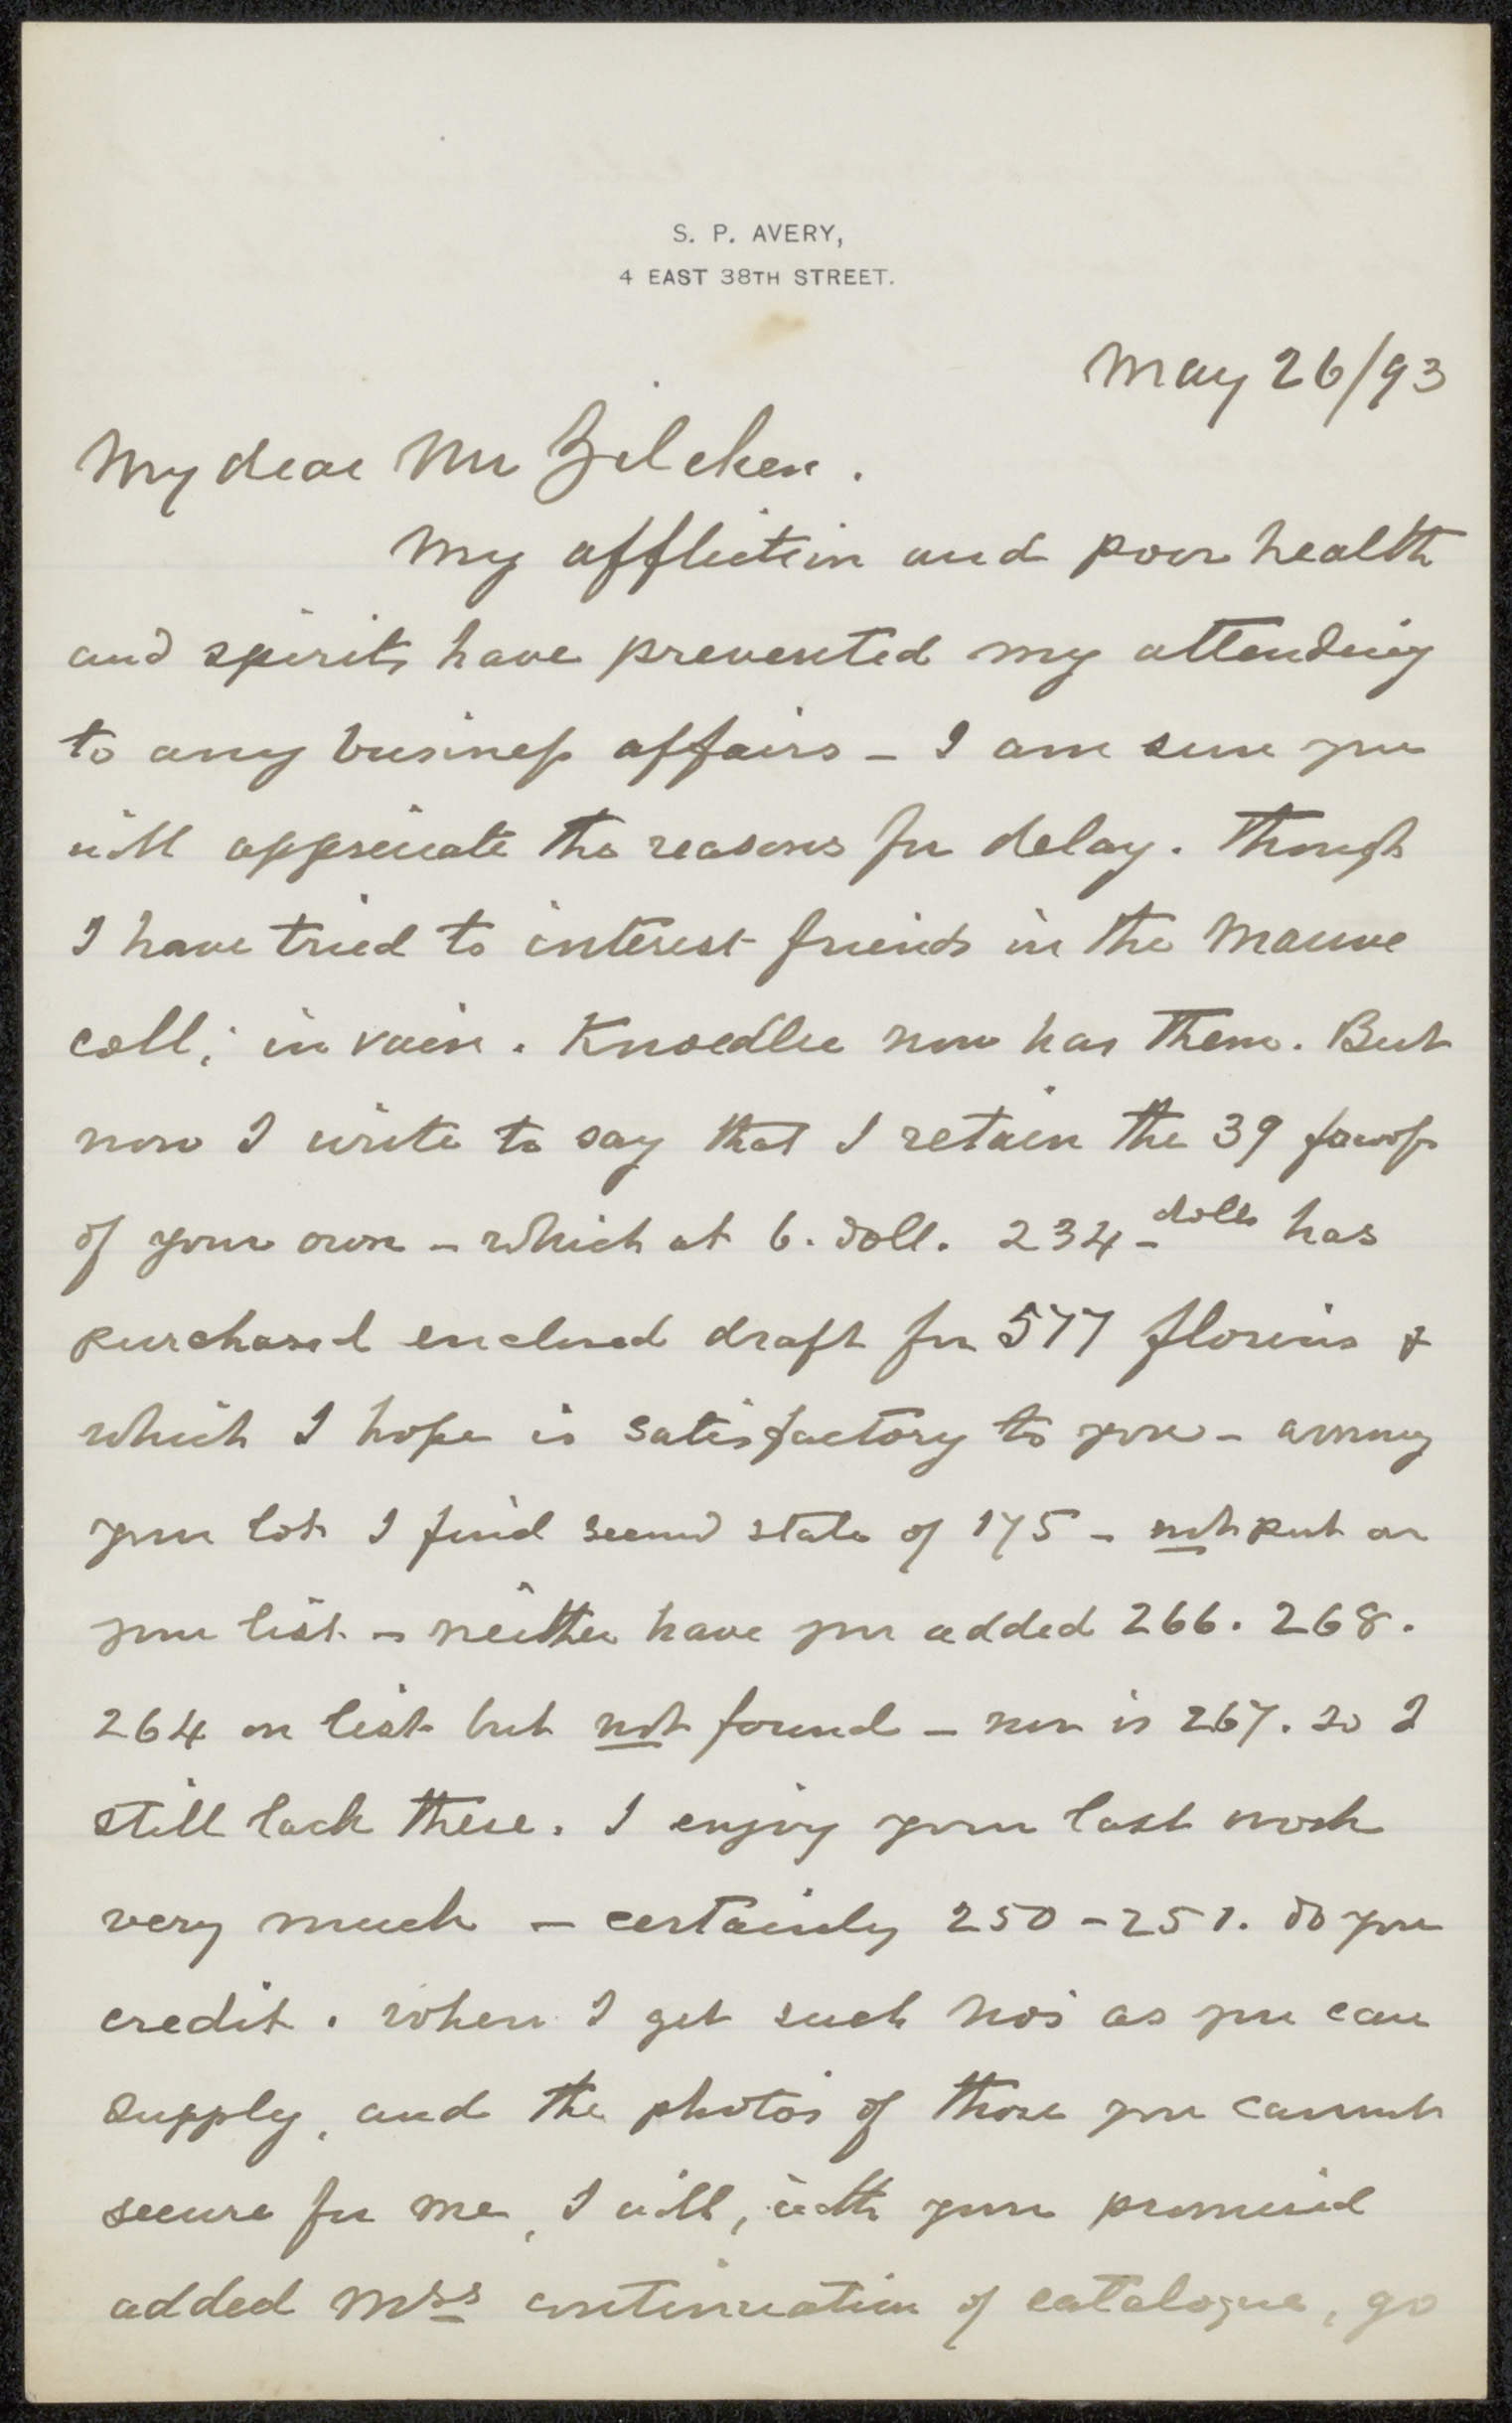 S. P. AVERY,
4 EAST 38TH STREET.
May 26/93
My dear Mr Zilcken.
My affliction and poor health
and spirits have prevented my attending
to any business affairs – I am sure you
will appreciate the reasons for delay. Though
I have tried to interest friends in the Mauve
coll; in vain. Knoedler now has them. But
now I write to say that I retain the 39 proofs
of your own – which at 6. doll. 234 – dolls has
purchased enclosed draft for 577 florins &
which I hope is satisfactory to you – among
your lot I find second state of 175 – not put on
your list – neither have you added 266. 268.
264 on list but not found – nor is 267. so I
still lack these. I enjoy your last work
very much – certainly 250 – 251. do you
credit. when I get such nos as you can
supply, and the photos of those you cannot
secure for me, I will, with your promised
added Mss continuation of catalogue, go